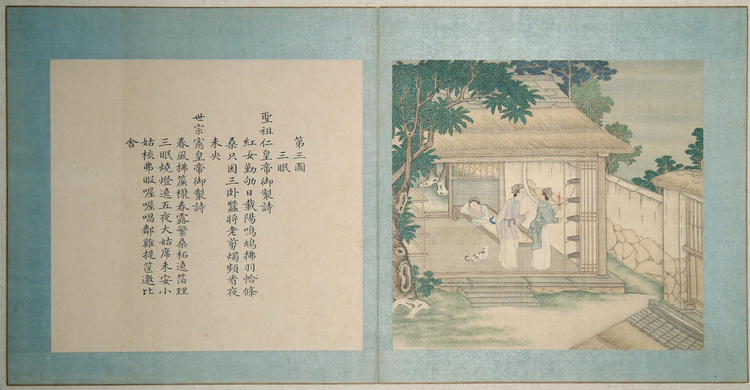 第三圖
三眠
聖祖仁皇帝御製詩
紅女勤劬日載陽鳴鳩拂羽恰條
桑只因三臥蠶將老剪燭頻看夜
未央
世宗憲皇帝御製詩
春風拂簾櫳春露繁桑柘遶箔理
三眠燒燈遶五夜大姑席未安小
姑梳弗暇喔喔唱鄰雞提筐邀比
舍